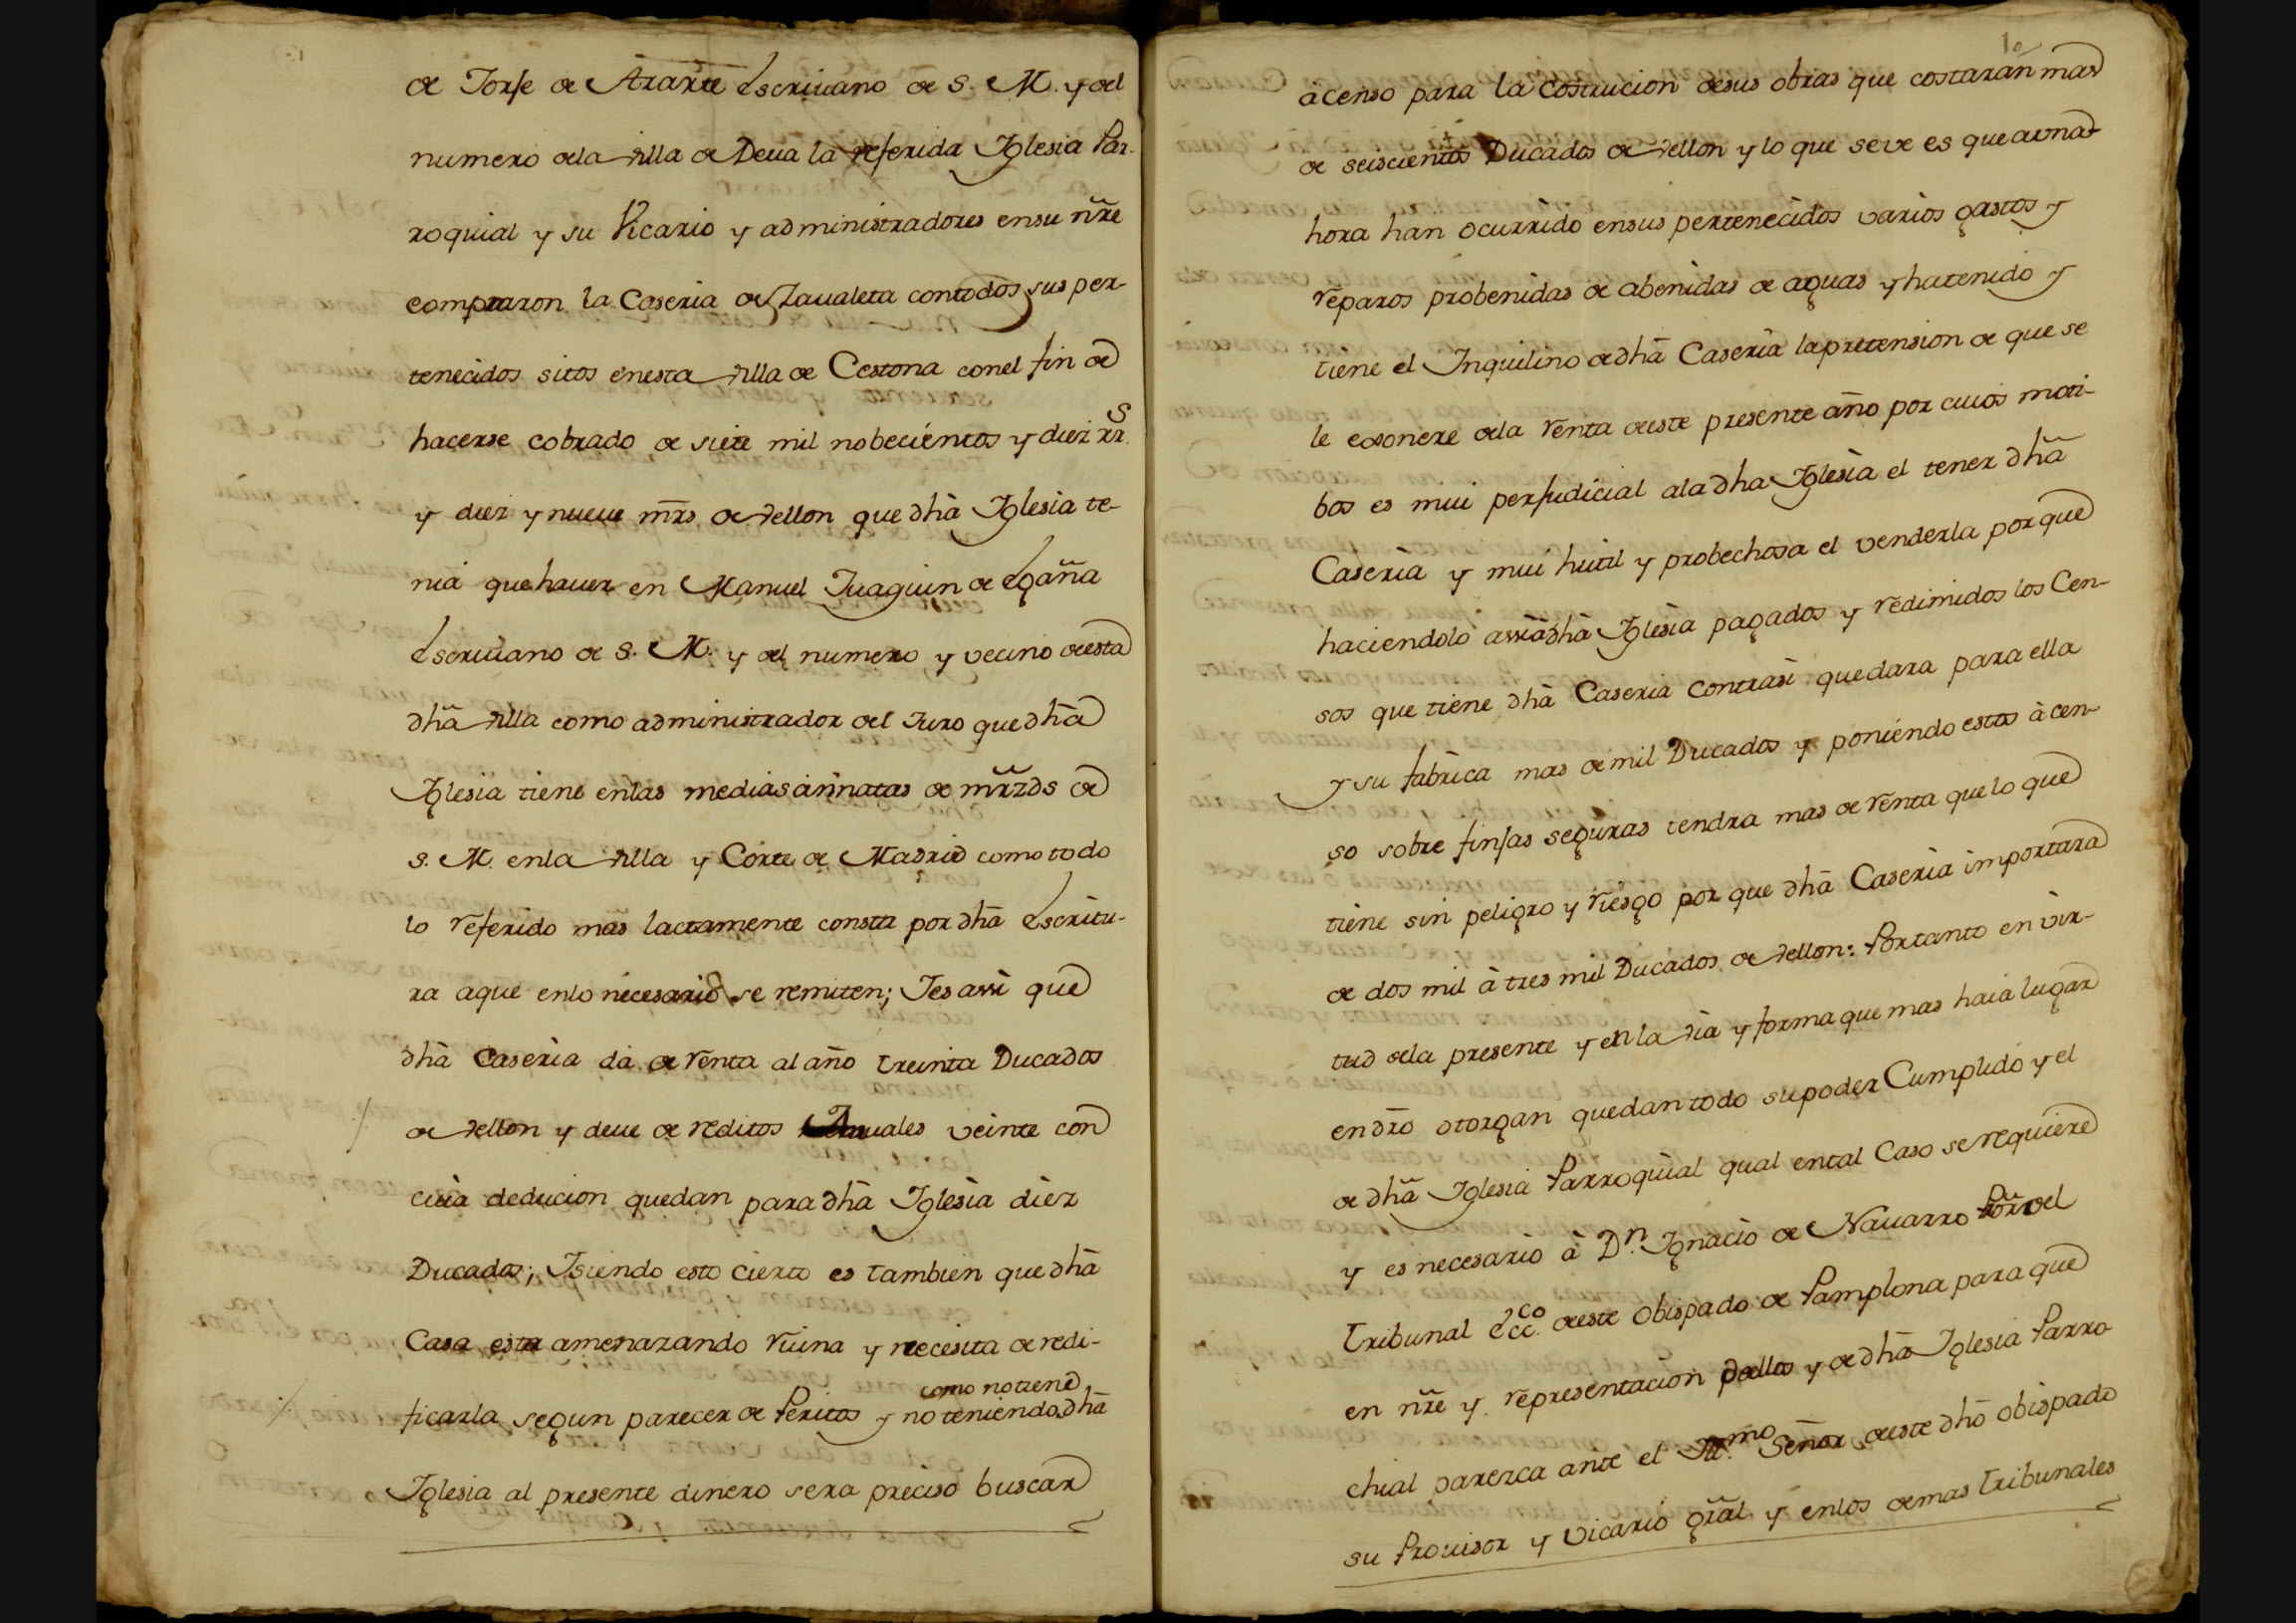 de Jorje de Ararte Escriuano de S. M. y del
numero dela villa de Deua la referida Iglesia Par-
roquial y su Vicario y administradores ensu nr̃e
compraron la Caseria de Zaualeta contodos sus per-
tenecidos sitos enesta villa de Cestona conel fin de
hacerse cobrado de siete mil nobecientos y diez rr.s
y diez y nueue mr̃s de vellon que dhã Iglesia te-
nia que hauer en Manuel Juaquin de Egaña
Escriuano de S. M. y del numero y vecino deesta
dhã villa como administrador del Juro que dhã
Iglesia tiene enlas medias annatas de mr̃zds de
S. M. enla villa y Corte de Madrid como todo
lo referido mas lactamente consta por dhã Escritu-
ra aque enlo necesario se remiten; Ies assi que
dhã Caseria da de renta al año treinta Ducados
de vellon y deue de reditos Anuales veinte con
cuia deducion quedan para dhã Iglesia diez
Ducados; Isiendo esto cierto es tambien que dhã
Casa esta amenazando ruina y necesita de redi-
como no tiene
ficarla segun parecer de Peritos y no teniendo dhã
Iglesia al presente dinero sera preciso buscar
10
à censo para la costrucion desus obras que costaran mas
de seiscientos Ducados de vellon y lo que se ve es que aun a-
hora han ocurrido ensus pertenecidos varios gastos y
reparos probenidas de abenidas de aguas y ha tenido y
tiene el Inquilino de dhã Caseria la pretension de que se
le exonere dela renta deeste presente año por cuios moti-
bos es mui perjudicial ala dha Iglesia el tener dhã
Caseria y mui hutil y probechosa el venderla por que
haciendolo assi à dhã Iglesia pagados y redimidos los Cen-
sos que tiene dhã Caseria contrasi quedara para ella
y su fabrica mas de mil Ducados y poniendo estos à cen-
so sobre finjas seguras tendra mas de renta que lo que
tiene sin peligro y riesgo por que dhã Caseria importara
de dos mil à tres mil Ducados de vellon: Portanto en vir-
tud dela presente y en la via y forma que mas haia lugar
en dr̃o otorgan quedan todo su poder Cumplido y el
de dhã Iglesia Parroquial qual ental Caso se requiere
y es necesario à D.n Ignacio de Nauarro Pror del
Tribunal Ecc.co deeste Obispado de Pamplona para que
en nr̃e y representacion dellos y de dhã Iglesia Parro-
chial parezca ante el Ill.mo Señor deeste dhõ obispado
su Prouisor y Vicario gr̃al y enlos demas Tribunales